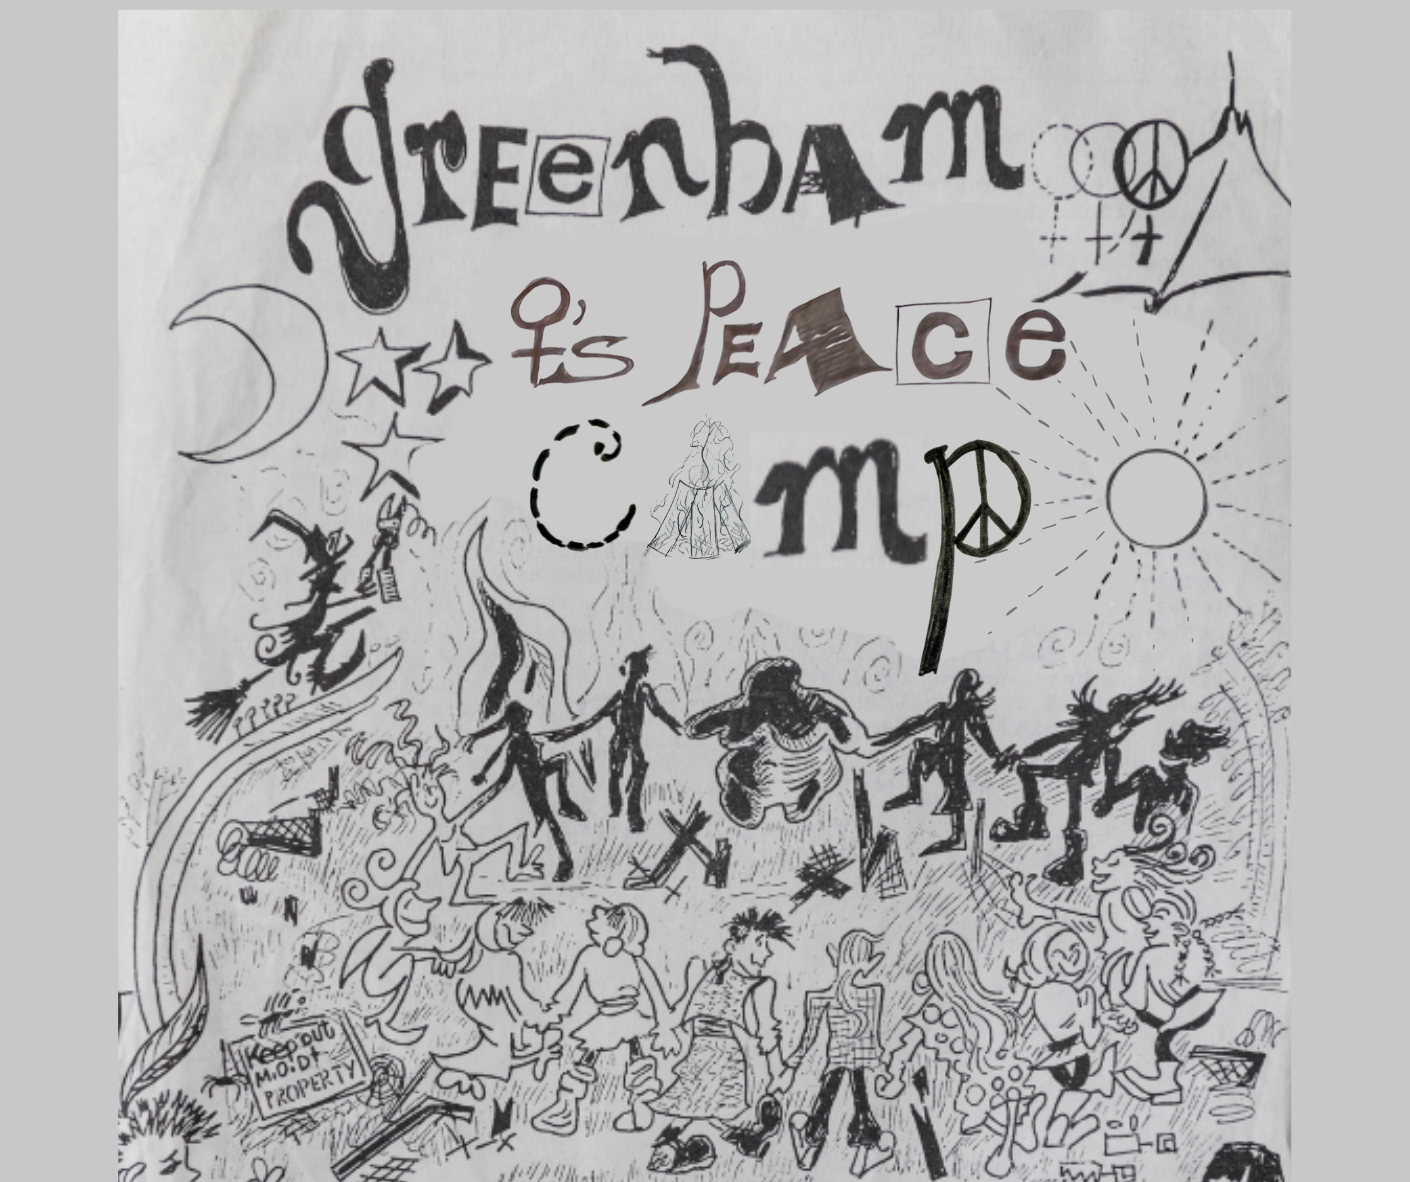 greenham
♀'s PEACe
CAmp
Keep out
M.O.D+
PROPERTY